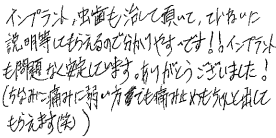 インプラント、虫歯も治して頂いて、ていねいに
説明等してもらえるので分かりやすいです!!インプラント
も問題なく安定しています。ありがとうございました!
(ちなみに痛みに弱い方でも痛み止めもちゃんと出して
もらえます(笑))